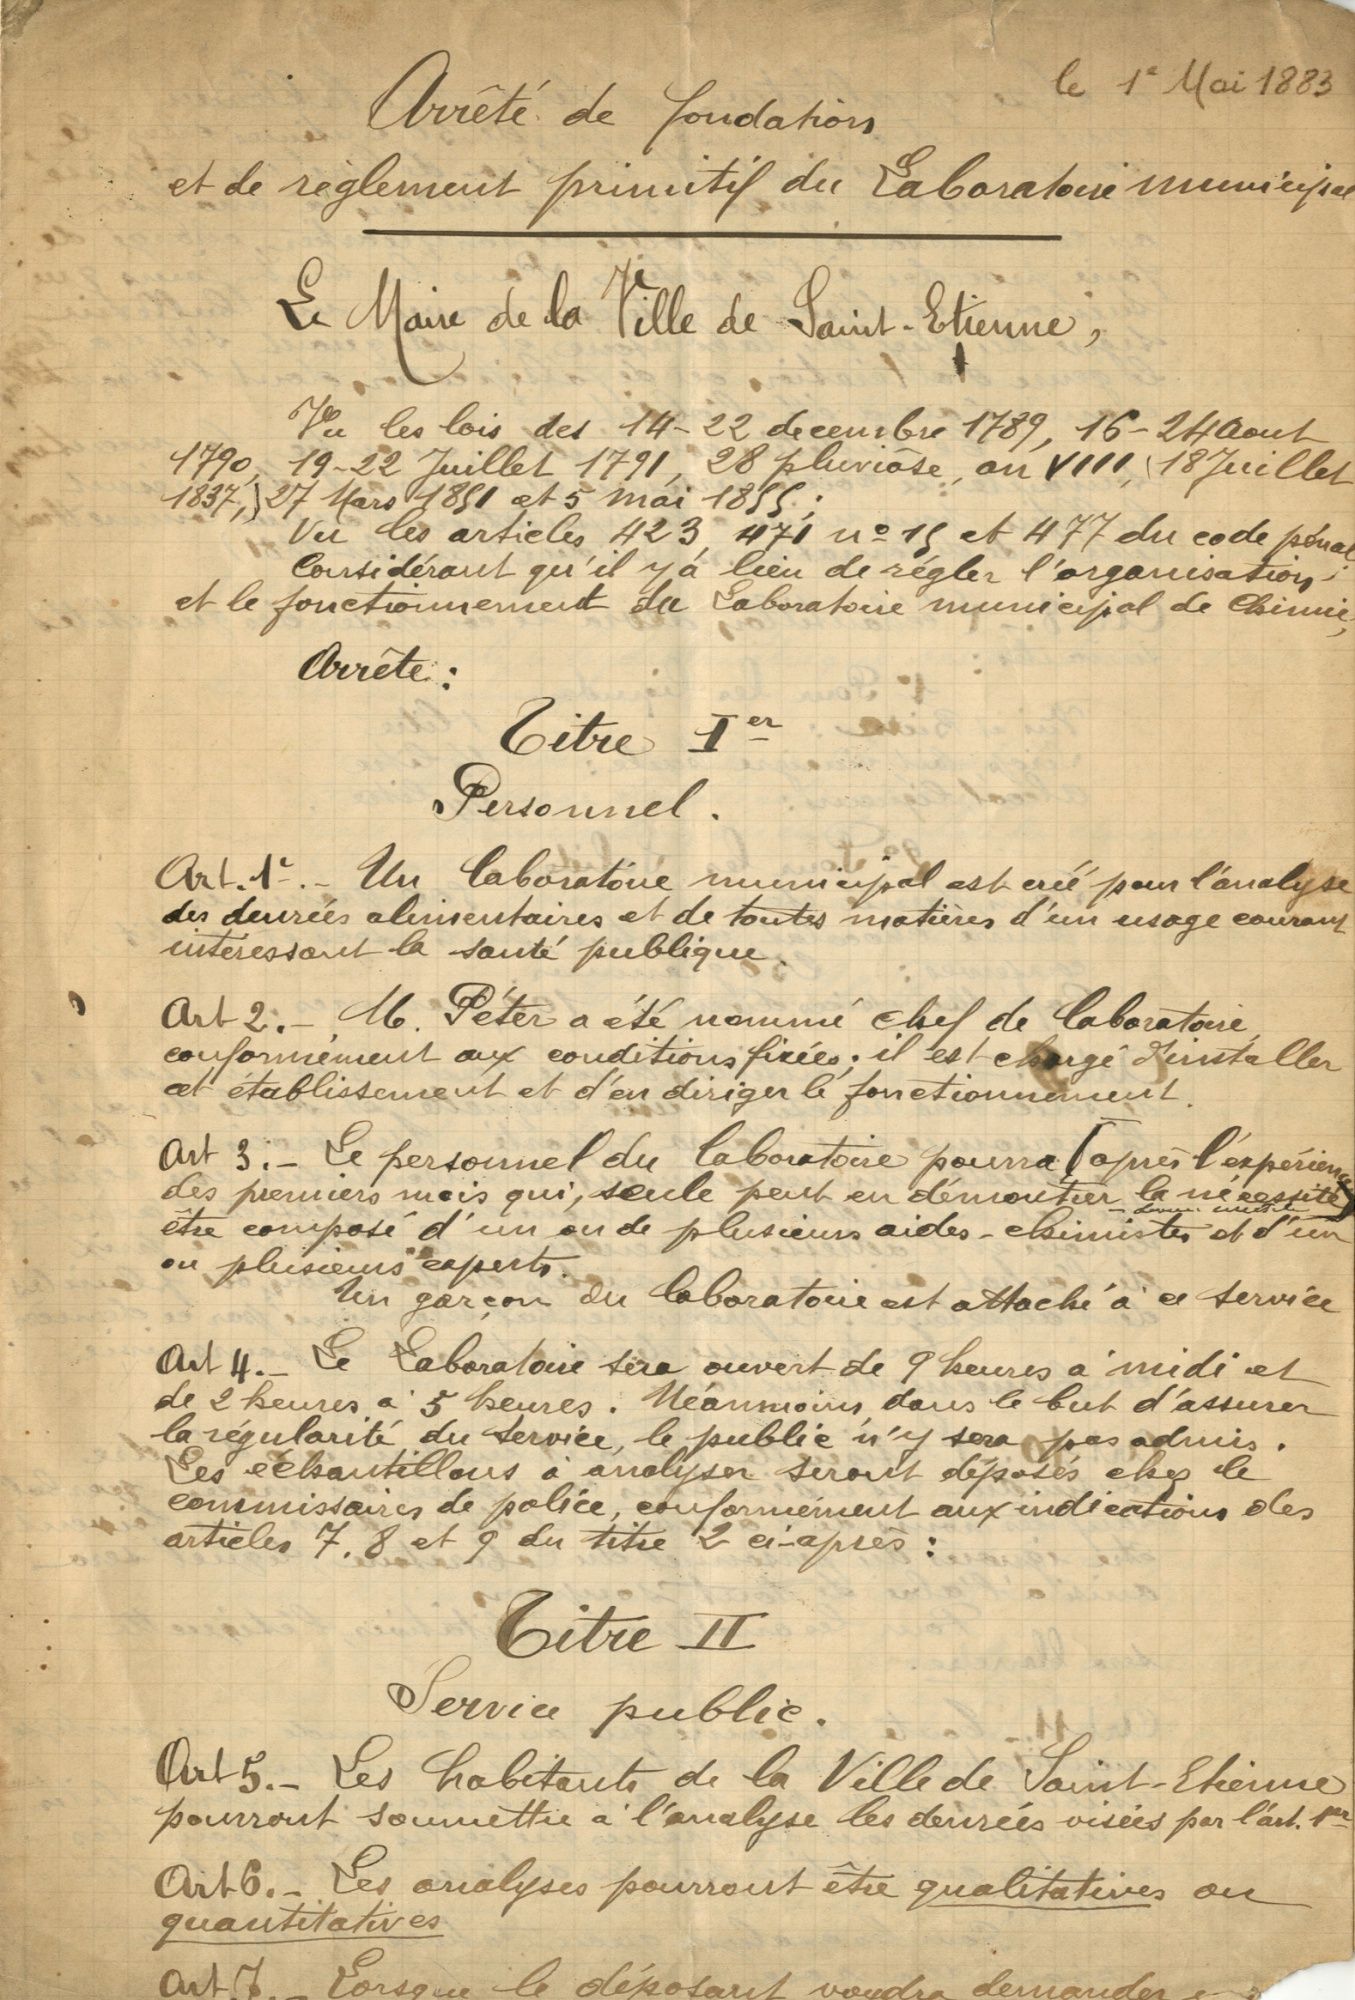 le 1er Mai 1883
Arrêté de fondation
et de règlement primitif du Laboratoire municipal
Le Maire de la Ville de Saint-Etienne,
Vu les lois des 14-22 decembre 1789, 16-24 Aout
1790, 19-22 Juillet 1791, 28 pluviôse, an VIII, (18 Juillet
1837,) 27 Mars 1851 et 5 mai 1855;
Vu les articles 423, 471 no 15 et 477 du code pénal
Considérant qu'il y a lieu de régler l'organisation
et le fonctionnement du Laboratoire municipal de Chimie,
Arrête:
Titre Ier
Personnel.
Art. 1er. - Un laboratoire municipal est créé pour l'analyse
des denrées alimentaires et de toutes matières d'un usage courant
intéressant la santé publique.
Art 2. - M. Péter a été nommé chef de laboratoire,
conformément aux conditions fixées; il est chargé d'installer
cet établissement et d'en diriger le fonctionnement.
Art 3. - Le personnel du laboratoire pourra [après l'expérience
des premiers mois qui, seule peut en démontrer la nécessité]
être composé d'un ou de plusieurs aides-chimistes et d'un
ou plusieurs experts.
Un garçon du laboratoire est attaché à ce service
Art 4. - Le Laboratoire sera ouvert de 9 heures à midi et
de 2 heures à 5 heures. Néanmoins dans le but d'assurer
la régularité du service, le public n'y sera pas admis.
Les échantillons à analyser seront déposés chez le
commissaires de police, conformément aux indications des
articles 7, 8 et 9 du titre 2 ci-après:
Titre II
Service public.
Art 5. - Les habitants de la Ville de Saint-Etienne
pourront soumettre à l'analyse les denrées visées par l'art. 1er
Art 6. - Les analyses pourront être qualitatives ou
quantitatives
Art. 7. - Lorsque le déposant voudra demander